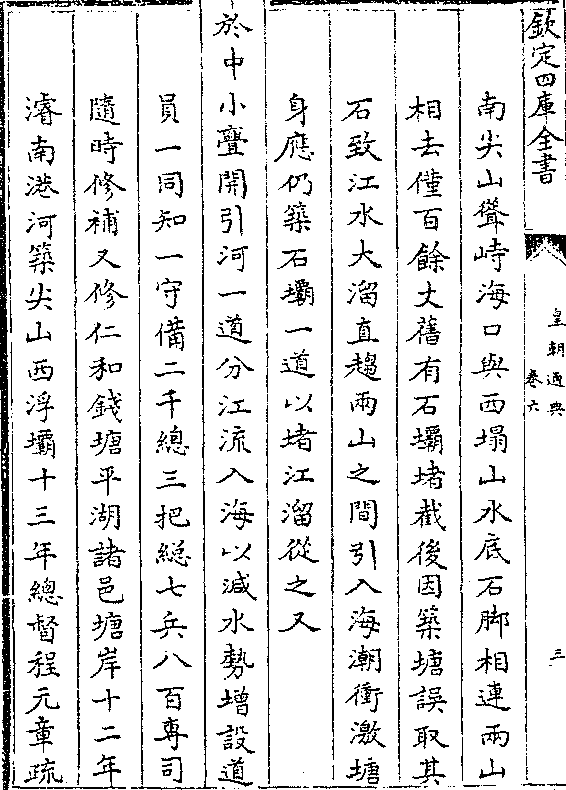 欽定四庫全書
皇朝通典
卷六
三
南尖山聳峙海口與西塌山水底石脚相連兩山
相去僅百餘丈舊有石壩堵截後因築塘誤取其
石致江水大溜直趨兩山之間引入海潮衝激塘
身應仍築石壩一道以堵江溜從之又
於中小亹開引河一道分江流入海以減水勢增設道
員一同知一守備二千總三把總七兵八百專司
隨時修補又修仁和錢塘平湖諸邑塘岸十二年
濬南港河築尖山西浮壩十三年總督程元章疏